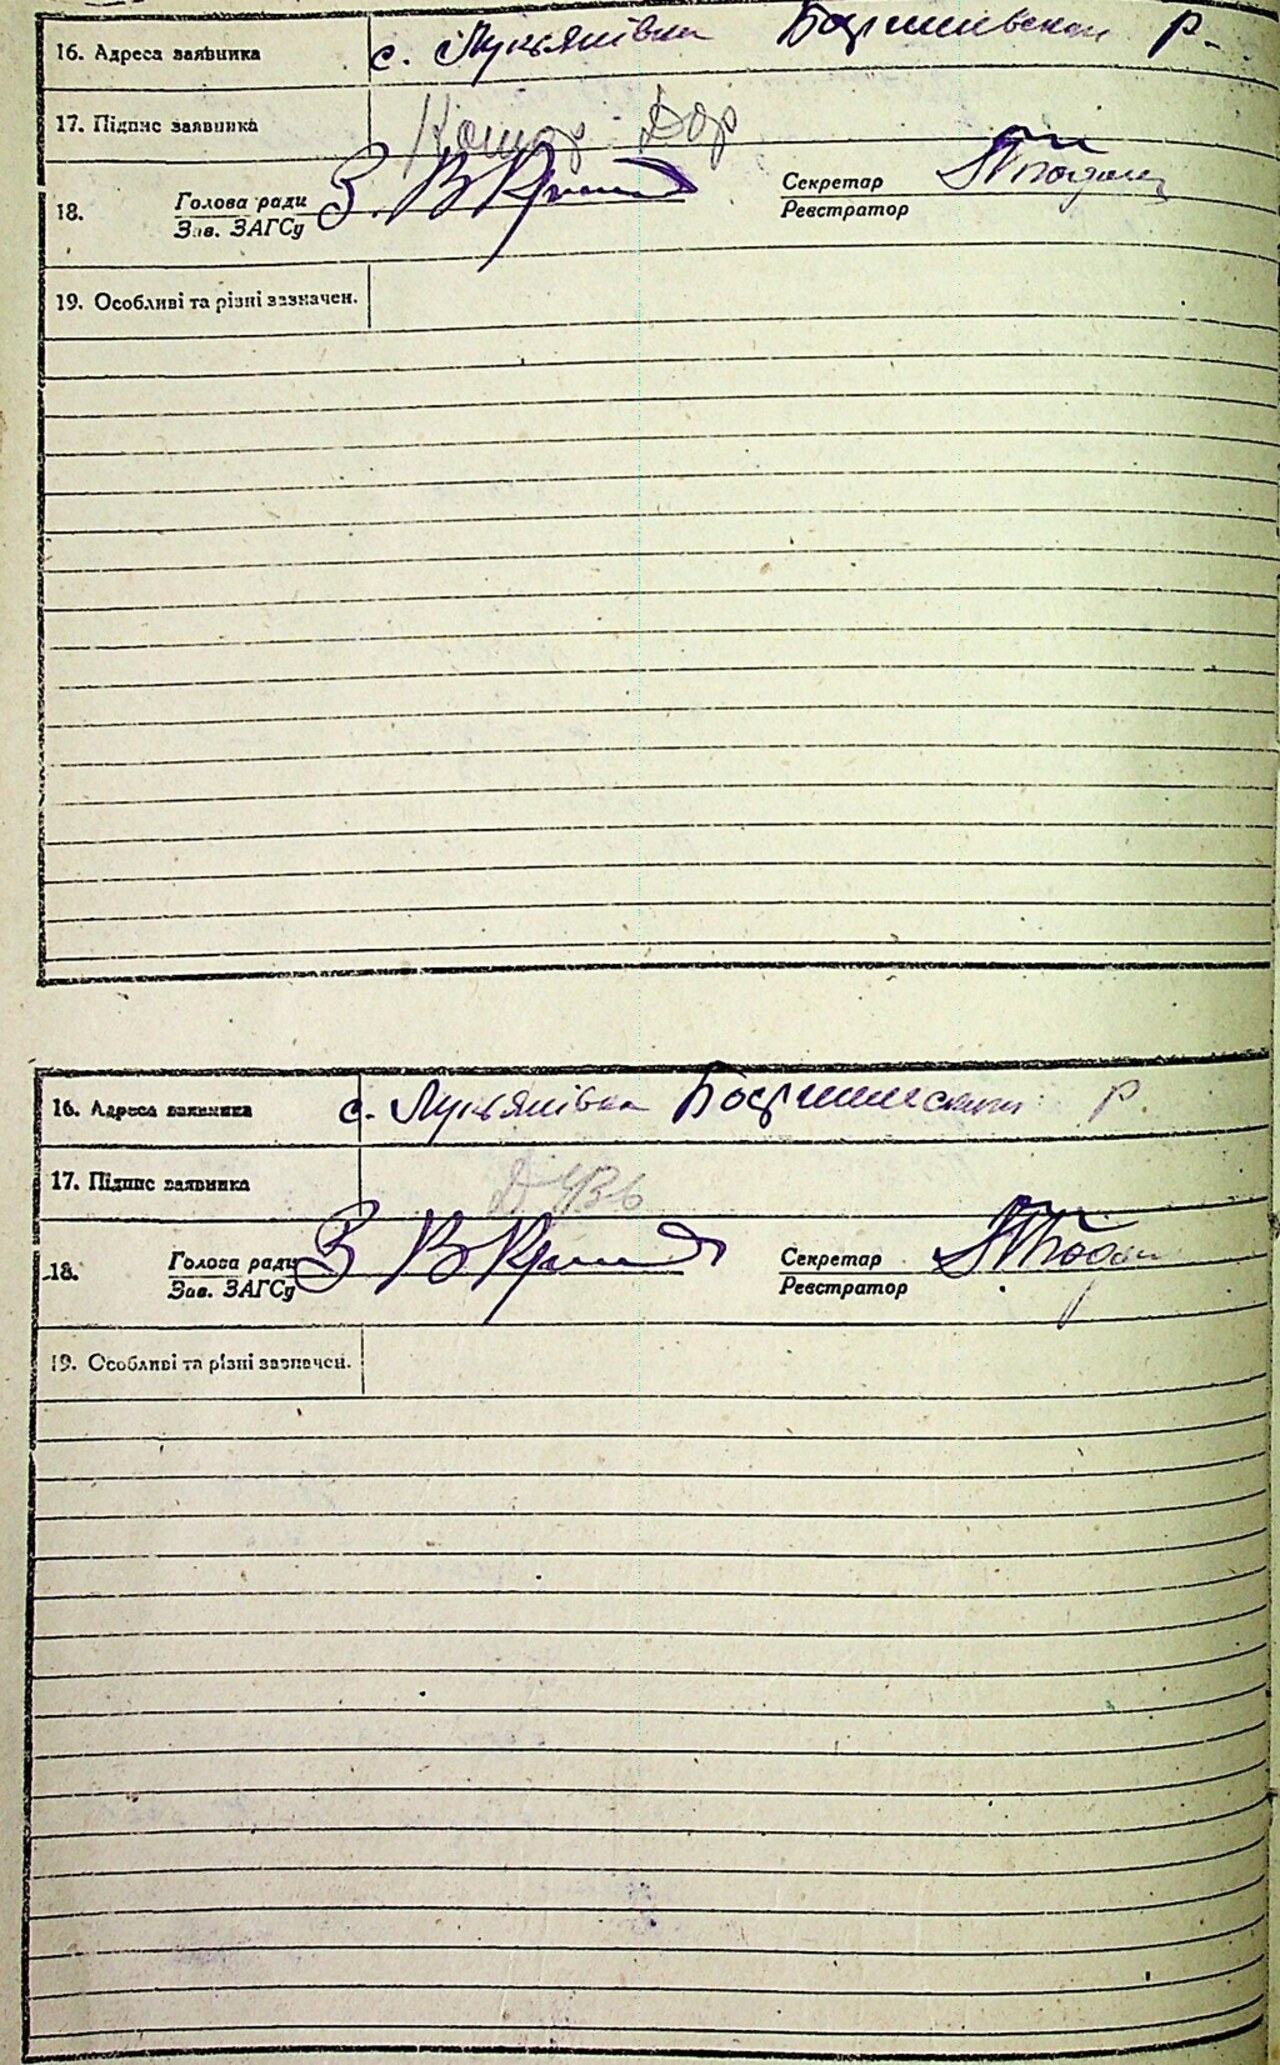 16. Адреса заявника с. Лук'янівка Баришівської р.
17. Підпис заявника
18. Голова ради Секретар
Зав. ЗАГСу Реєстратор
19. Особливі та різні зазначен.
16. Адреса заявника с. Лук'янівка р.
17. Підпис заявника
18. Голова ради Секретар
Зав. ЗАГСу Реєстратор
19. Особливі та різні зазначен.